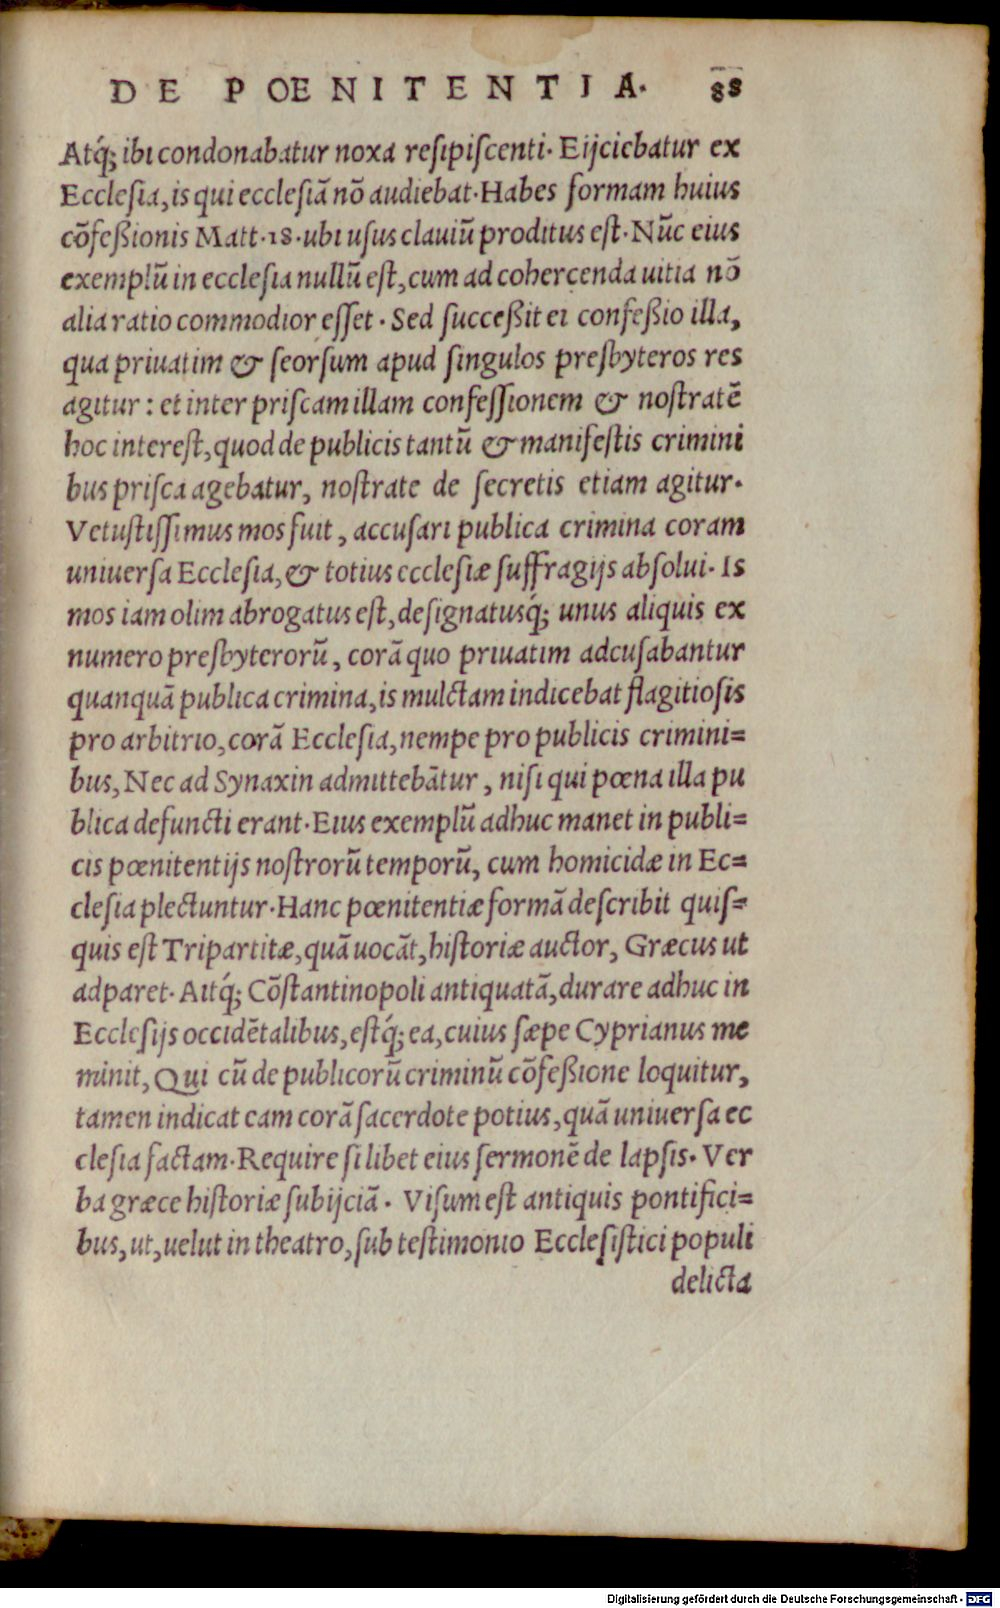 DE POENITENTIA. 88
Atq́; ibi condonabatur noxa resipiscenti. Eijciebatur ex
Ecclesia, is qui ecclesiã nõ audiebat. Habes formam huius
cõfeßionis Matt. 18. ubi usus clauiũ proditus est. Nũc eius
exemplũ in ecclesia nullũ est, cum ad cohercenda uitia nõ
alia ratio commodior esset. Sed succeßit ei confeßio illa,
qua priuatim & seorsum apud singulos presbyteros res
agitur: et inter priscam illam confessionem & nostratẽ
hoc interest, quod de publicis tantũ & manifestis crimini
bus prisca agebatur, nostrate de secretis etiam agitur.
Vetustissimus mos fuit, accusari publica crimina coram
uniuersa Ecclesia, & totius ecclesiæ suffragijs absolui. Is
mos iam olim abrogatus est, designatusq́; unus aliquis ex
numero presbyterorũ, corã quo priuatim adcusabantur
quanquã publica crimina, is mulctam indicebat flagitiosis
pro arbitrio, corã Ecclesia, nempe pro publicis crimini=
bus, Nec ad Synaxin admittebãtur, nisi qui pœna illa pu
blica defuncti erant. Eius exemplũ adhuc manet in publi=
cis pœnitentijs nostrorũ temporũ, cum homicidæ in Ec=
clesia plectuntur. Hanc pœnitentiæ formã describit quis=
quis est Tripartitæ, quã uocãt, historiæ auctor, Græcus ut
adparet. Aitq́; Cõstantinopoli antiquatã, durare adhuc in
Ecclesijs occidẽtalibus, estq́; ea, cuius sæpe Cyprianus me
minit, Qui cũ de publicorũ criminũ cõfeßione loquitur,
tamen indicat eam corã sacerdote potius, quã uniuersa ec
clesia factam. Require si libet eius sermonẽ de lapsis. Ver
ba græce historiæ subijciã. Visum est antiquis pontifici=
bus, ut, uelut in theatro, sub testimonio Ecclesistici populi
delicta
Digitalisierung gefördert durch die Deutsche Forschungsgemeinschaft - DFG